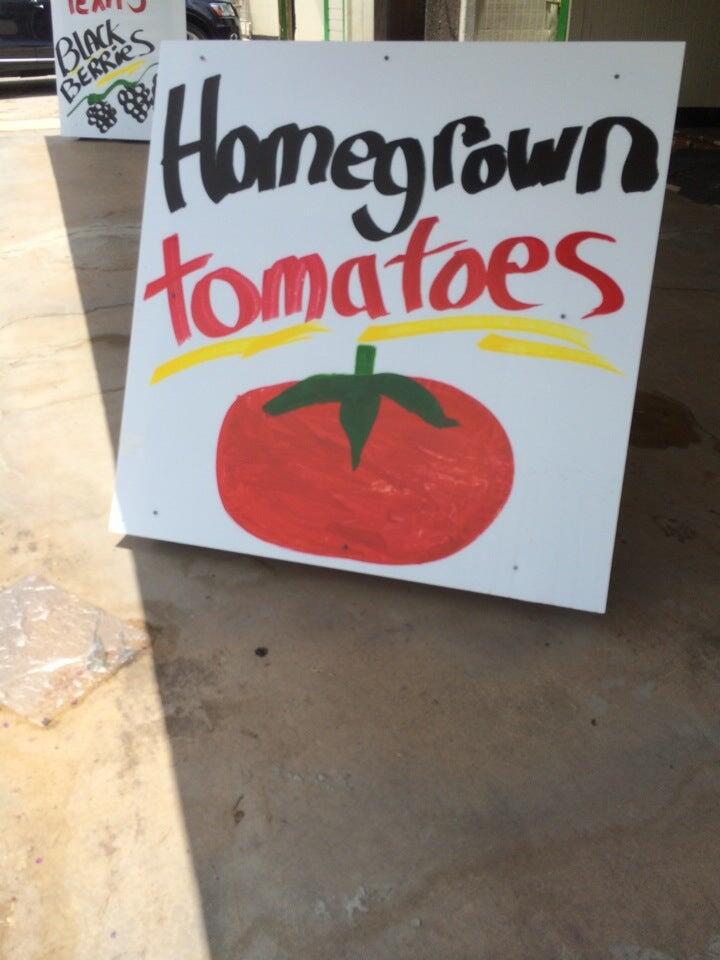 Texas
BLACK
BERRIES
Homegrown
tomatoes